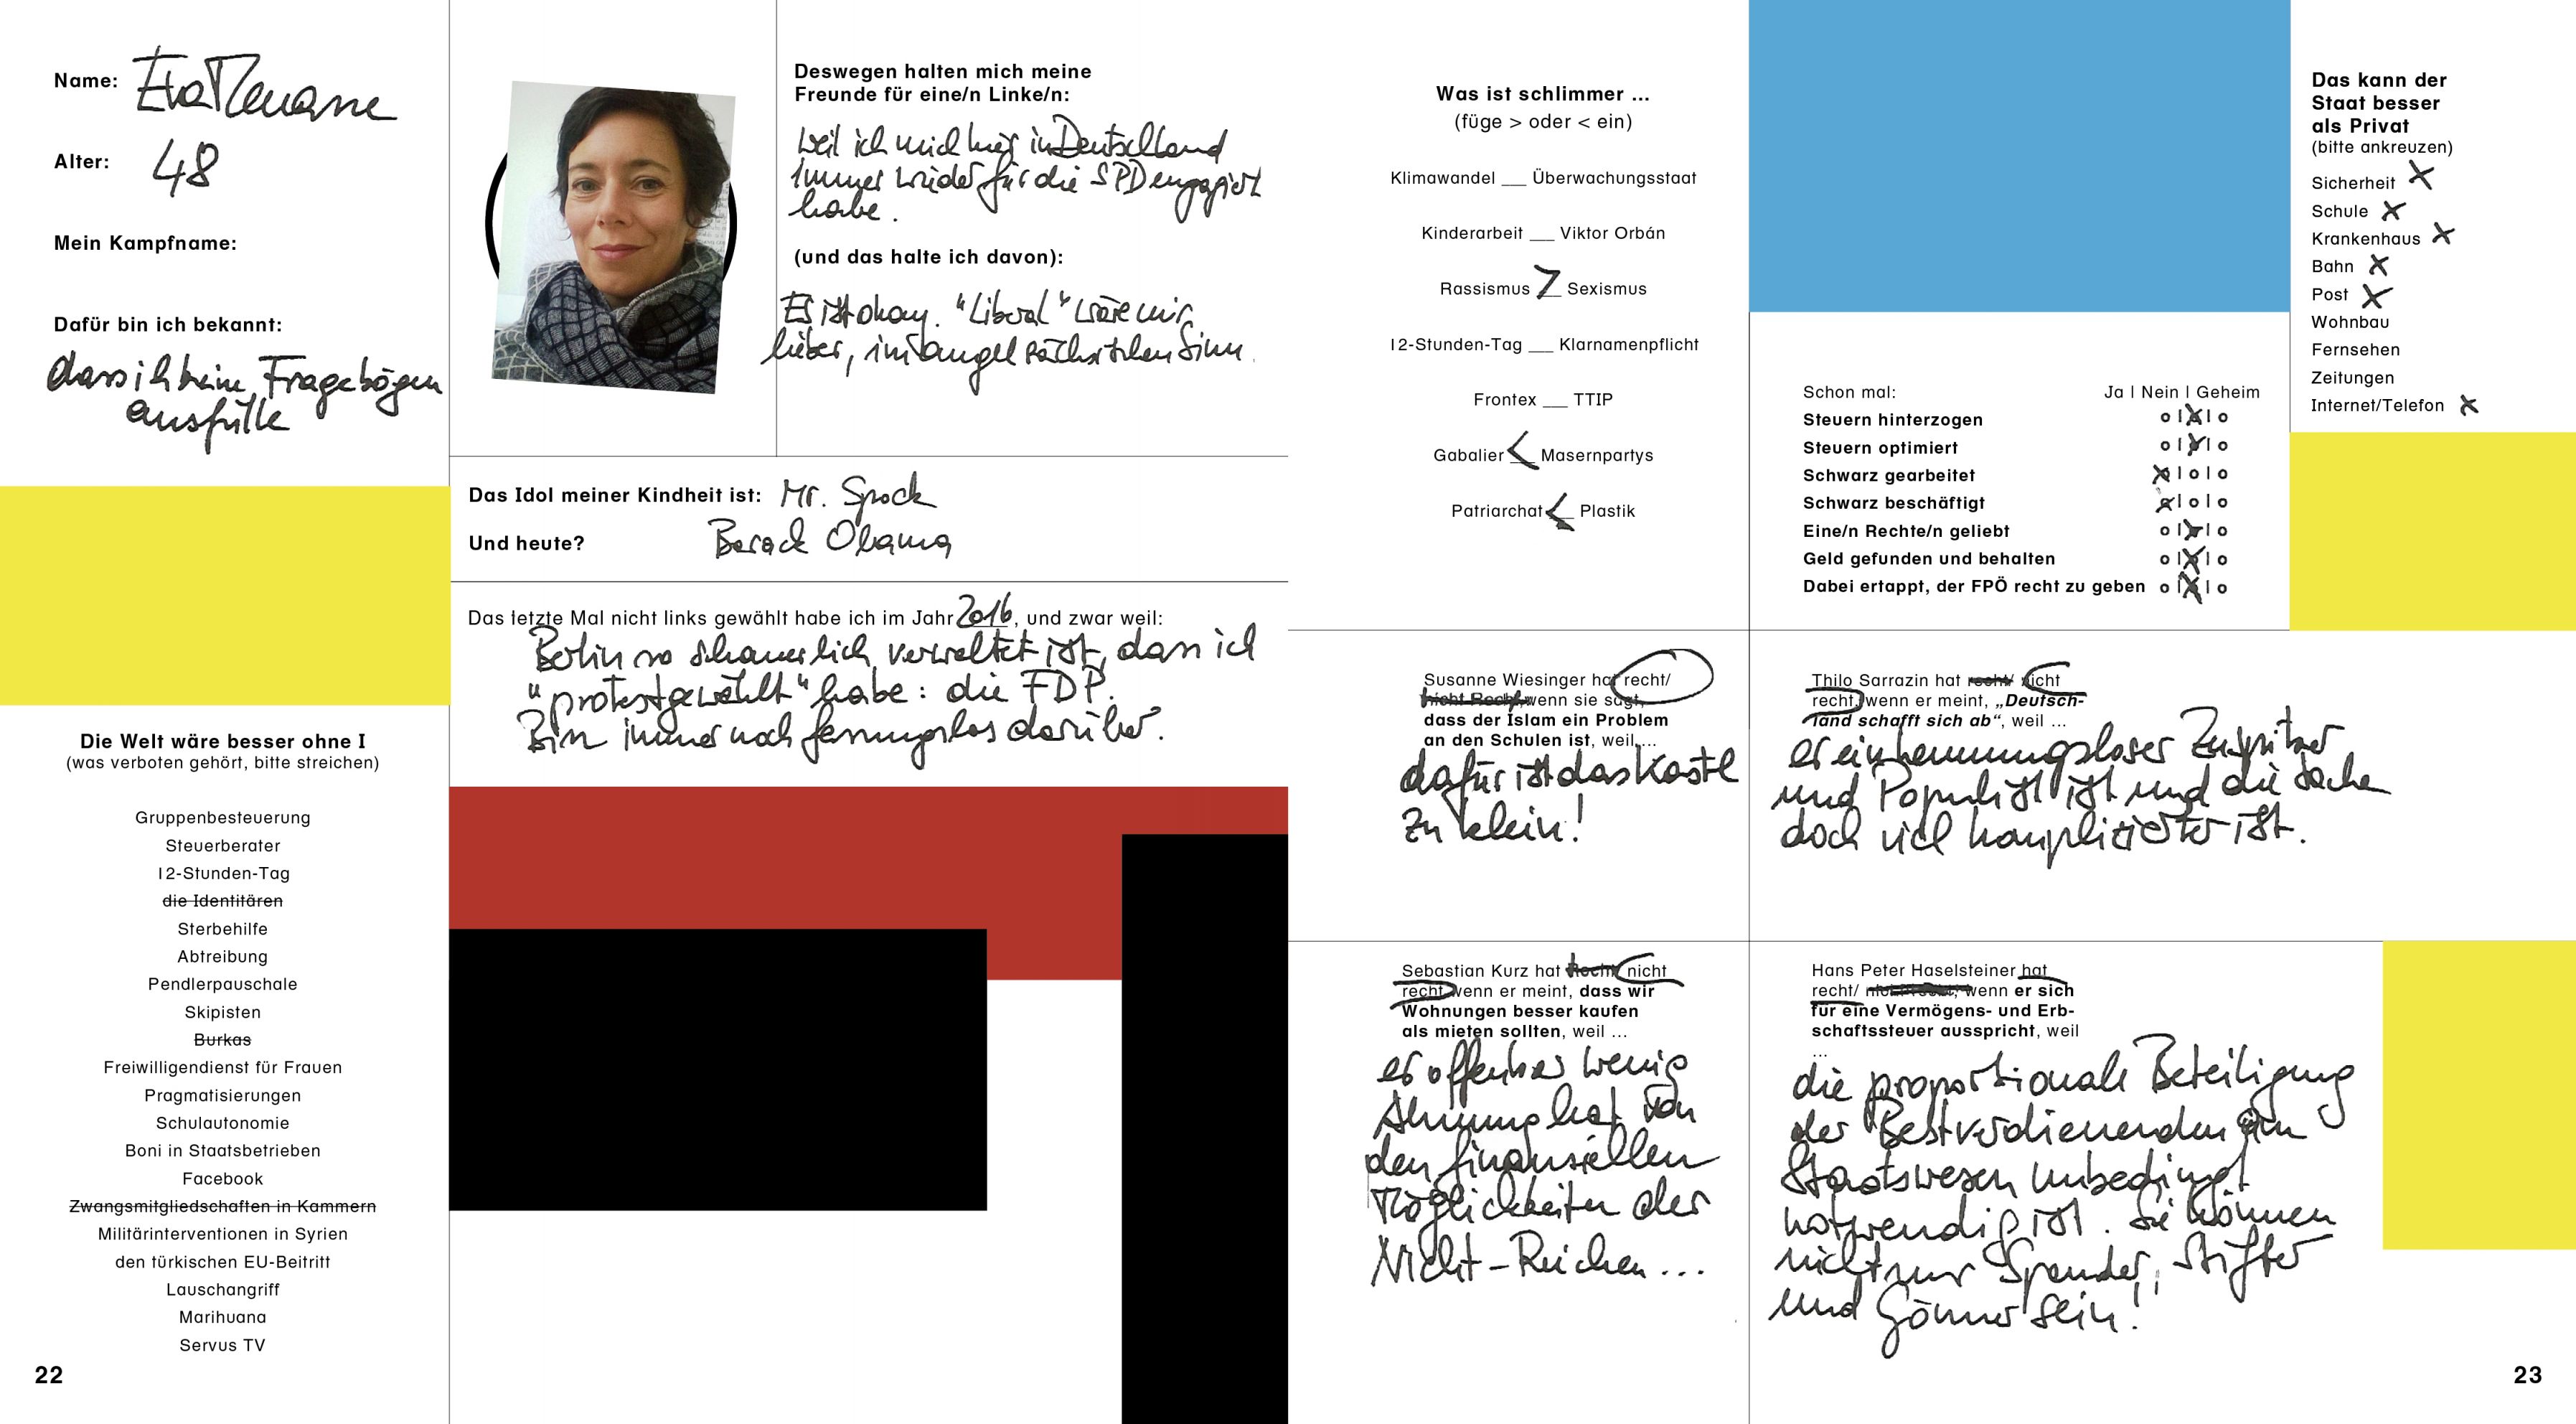 Name: Eva Menasse
Alter: 48
Mein Kampfname:
Dafür bin ich bekannt:
dass ich keine Fragebögen
ausfülle
Die Welt wäre besser ohne I
(was verboten gehört, bitte streichen)
Gruppenbesteuerung
Steuerberater
12-Stunden-Tag
die Identitären
Sterbehilfe
Abtreibung
Pendlerpauschale
Skipisten
Burkas
Freiwilligendienst für Frauen
Pragmatisierungen
Schulautonomie
Boni in Staatsbetrieben
Facebook
Zwangsmitgliedschaften in Kammern
Militärinterventionen in Syrien
den türkischen EU-Beitritt
Lauschangriff
Marihuana
Servus TV
22
Deswegen halten mich meine
Freunde für eine/n Linke/n:
Weil ich mich hier in Deutschland
immer wieder für die SPD engagiert
habe.
(und das halte ich davon):
Es ist okay. "Liberal" wäre mir
lieber, im angelsächsischen Sinn.
Das Idol meiner Kindheit ist: Mr. Spock
Und heute? Barack Obama
Das letzte Mal nicht links gewählt habe ich im Jahr 2016, und zwar weil:
Berlin so schauerlich verwaltet ist, dass ich
"protestgewählt" habe: die FDP.
Bin immer noch fassungslos darüber.
Was ist schlimmer ...
(füge > oder < ein)
Klimawandel __ Überwachungsstaat
Kinderarbeit __ Viktor Orbán
Rassismus > Sexismus
12-Stunden-Tag __ Klarnamenpflicht
Frontex __ TTIP
Gabalier < Masernpartys
Patriarchat < Plastik
Schon mal: Ja | Nein | Geheim
Steuern hinterzogen o | x | o
Steuern optimiert o | x | o
Schwarz gearbeitet x | o | o
Schwarz beschäftigt x | o | o
Eine/n Rechte/n geliebt o | x | o
Geld gefunden und behalten o | x | o
Dabei ertappt, der FPÖ recht zu geben o | x | o
Das kann der
Staat besser
als Privat
(bitte ankreuzen)
Sicherheit x
Schule x
Krankenhaus x
Bahn x
Post x
Wohnbau
Fernsehen
Zeitungen
Internet/Telefon x
Susanne Wiesinger hat recht/
nicht Recht, wenn sie sagt,
dass der Islam ein Problem
an den Schulen ist, weil ...
dafür ist das Kastl
zu klein!
Thilo Sarrazin hat recht/ nicht
recht, wenn er meint, „Deutsch-
land schafft sich ab“, weil ...
er ein hemmungsloser Zuspitzer
und Populist ist und die Sache
doch viel komplizierter ist.
Sebastian Kurz hat Recht/ nicht
recht wenn er meint, dass wir
Wohnungen besser kaufen
als mieten sollten, weil ...
er offenbar wenig
Ahnung hat von
den finanziellen
Möglichkeiten der
Nicht-Reichen...
Hans Peter Haselsteiner hat
recht/ nicht Recht, wenn er sich
für eine Vermögens- und Erb-
schaftssteuer ausspricht, weil
...
die proportionale Beteiligung
der Bestverdienenden am
Staatswesen unbedingt
notwendig ist. Sie können
nicht nur Spender, Stifter
und Gönner sein!
23